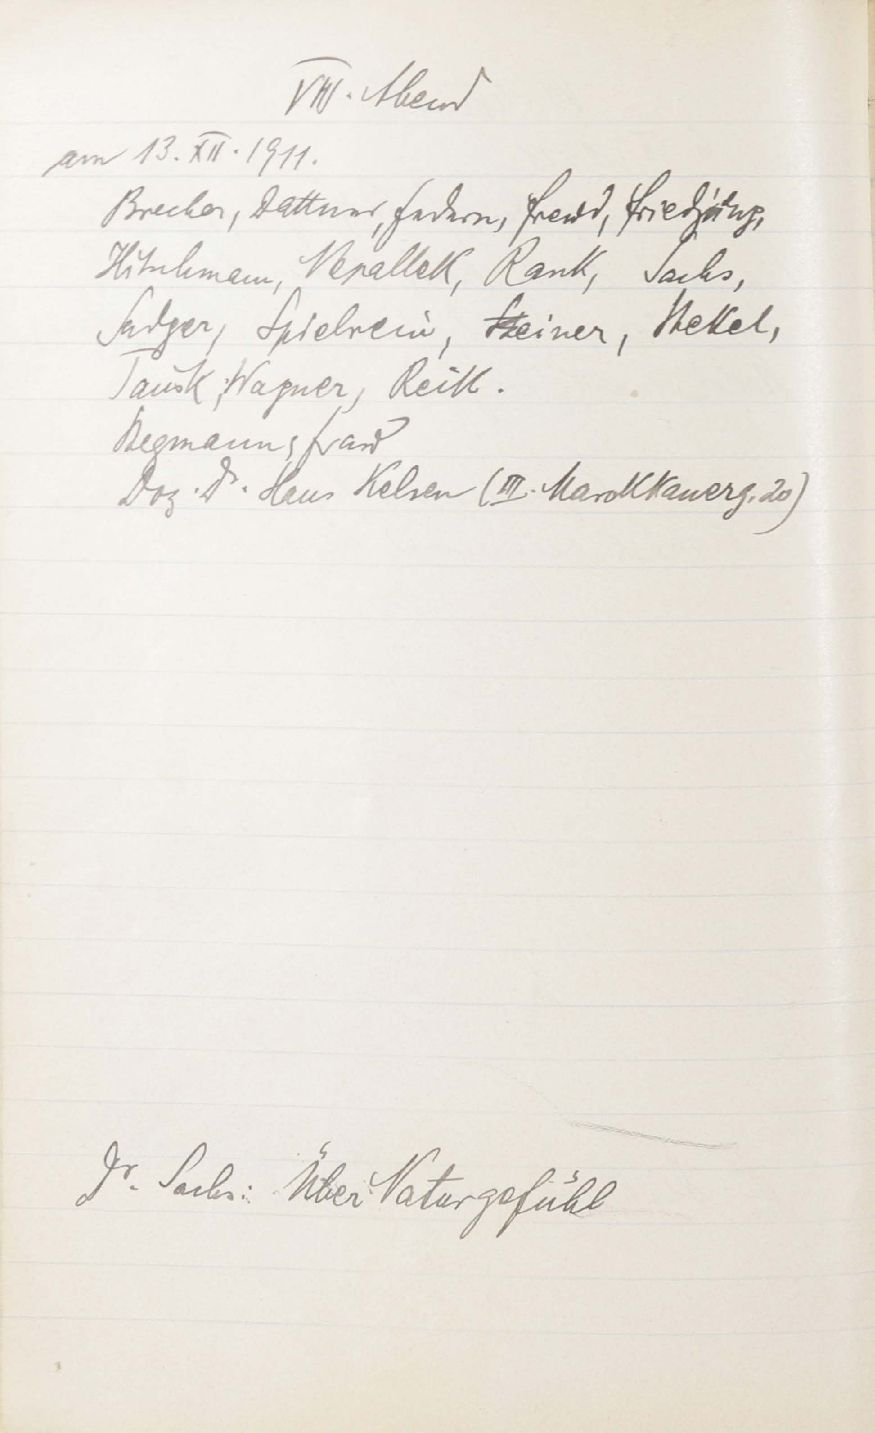 VIII. Abend
am 13. XII. 1911.
Brecher, Dattner, Federn, Freud, Friedjung,
Hitschmann, Nepallek, Rank, Sachs,
Sadger, Spielrein, Steiner, Stekel,
Tausk, Wagner, Reik.
Stegmann, Frau
Doz. Dr. Hans Kelsen (III. Marokkanerg. 20)
Dr. Sachs: Über Naturgefühl